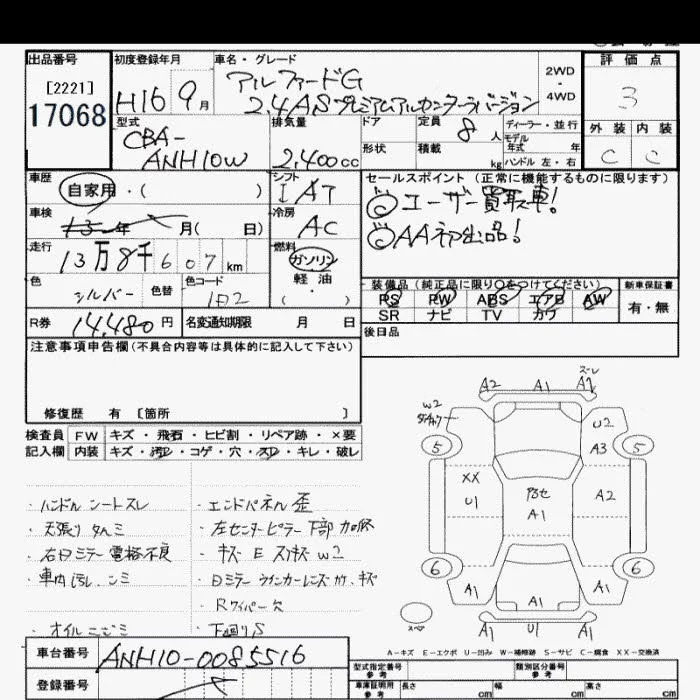 出品番号
[2221]
17068
初度登録年月
H16 9月
車名・グレード
アルファードG
2.4 AS プレミアムアルカンターラバージョン
2WD
・
4WD
評価点
3
外装 内装
C C
型式
CBA-
ANH10W
排気量
2,400cc
ドア
形状
定員 8人
積載 kg
ディーラー・並行
モデル
年式 年
ハンドル 左・右
車歴
自家用・( )
シフト
I AT
車検
13年 月( 日)
冷房
AC
走行
13万8千607km
燃料
ガソリン
軽油
( )
色
シルバー
色替
色コード
1D2
R券 14,480円
名変通知期限 月 日
セールスポイント(正常に機能するものに限ります)
◎ユーザー買取車!
◎AA初出品!
装備品(純正品に限り○をつけてください)
PS PW ABS エアB AW
SR ナビ TV カワ
新車保証書
有・無
後日品
注意事項申告欄(不具合内容等は具体的に記入して下さい)
修復歴 有 [箇所 ]
検査員
記入欄
FW キズ・飛石・ヒビ割・リペア跡・×要
内装 キズ・汚レ・コゲ・穴・スレ・キレ・破レ
・ハンドル シートスレ
・天張りタルミ
・右Dミラー電格不良
・車内汚レ、シミ
・オイルにごミ
・エンドパネル歪
・左センターピラー下部加修
・キズ E スリキズ W2
・Dミラーウインカーレンズカケ、キズ
・Rワイパー欠
・下廻りS
A2 A1 A2
スレ
W2
U2
5 5
A3
XX
U1
A1
A2
6 6
A1 A1
A1
A1 U1 A1
スペア
A-キズ E-エクボ U-凹み W-補修跡 S-サビ C-腐食 XX-交換済
車台番号
ANH10-0085516
登録番号
型式指定番号
参考
類別区分番号
参考
車庫証明用
参考
長さ cm
幅 cm
高さ cm